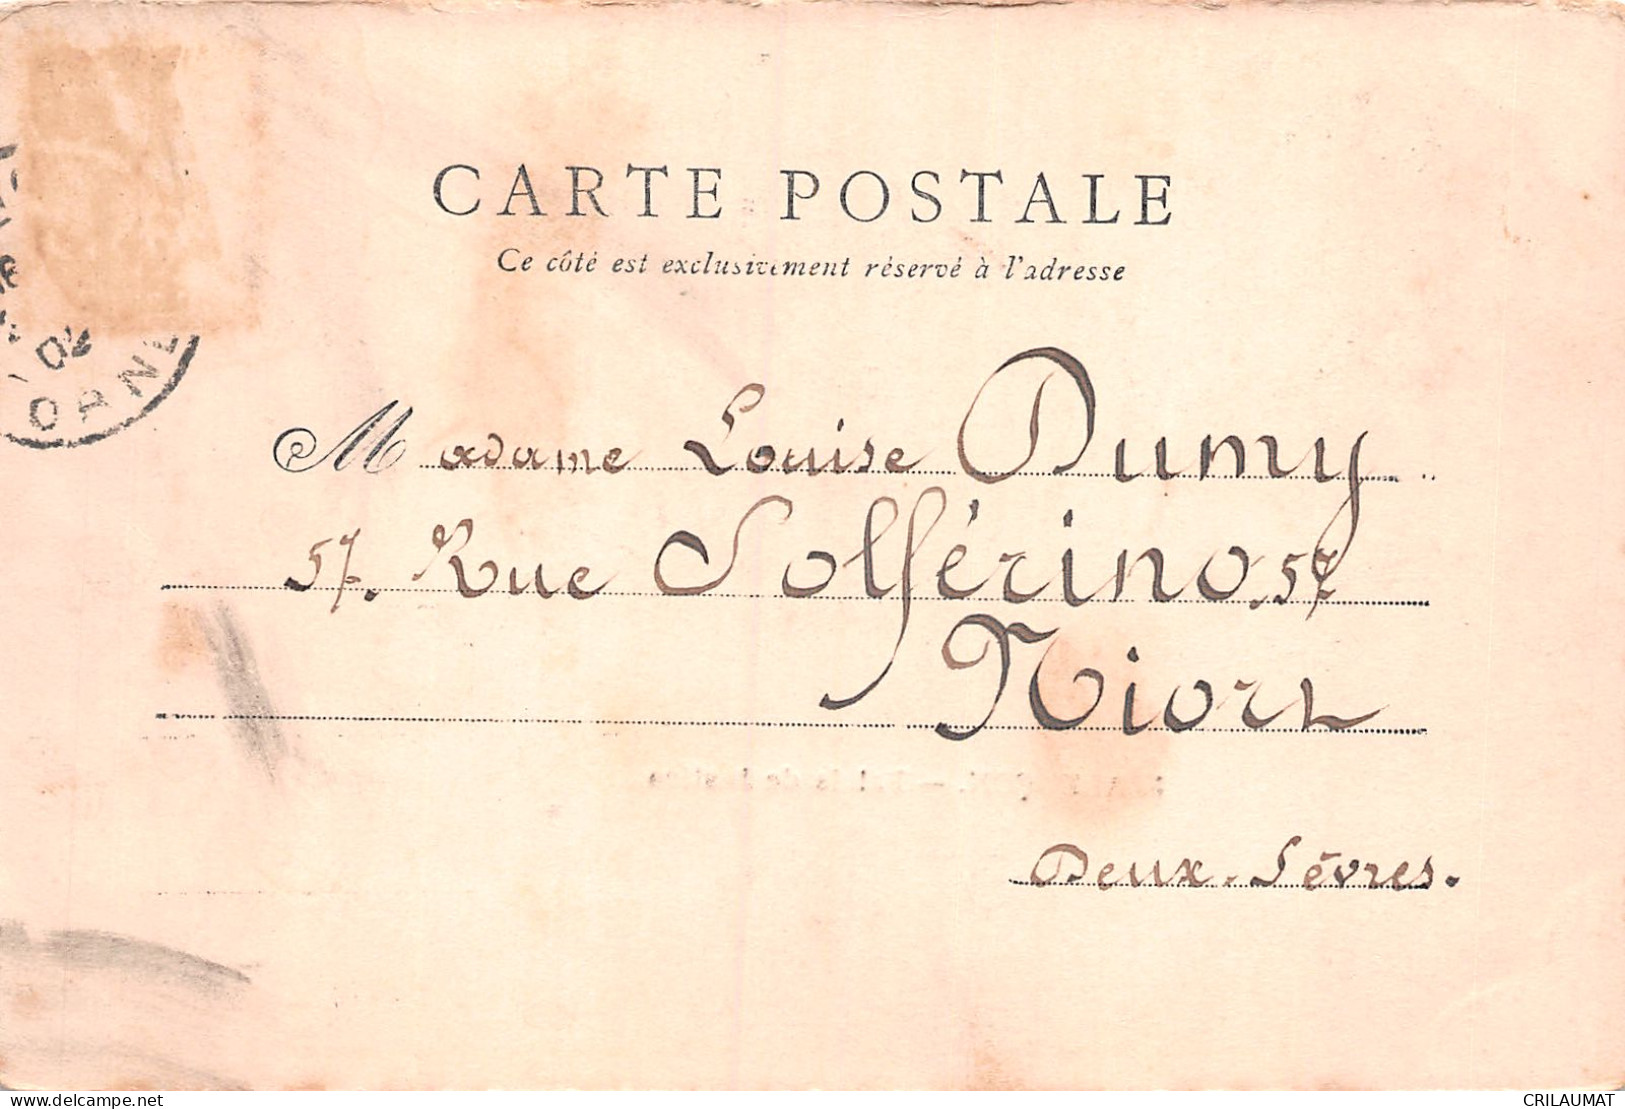 CARTE POSTALE
Ce côté est exclusivement réservé à l'adresse
02
ORNE
Madame Louise Dumy
57. Rue Solférino. 57
Niort
Deux-Sèvres.
CRILAUMAT